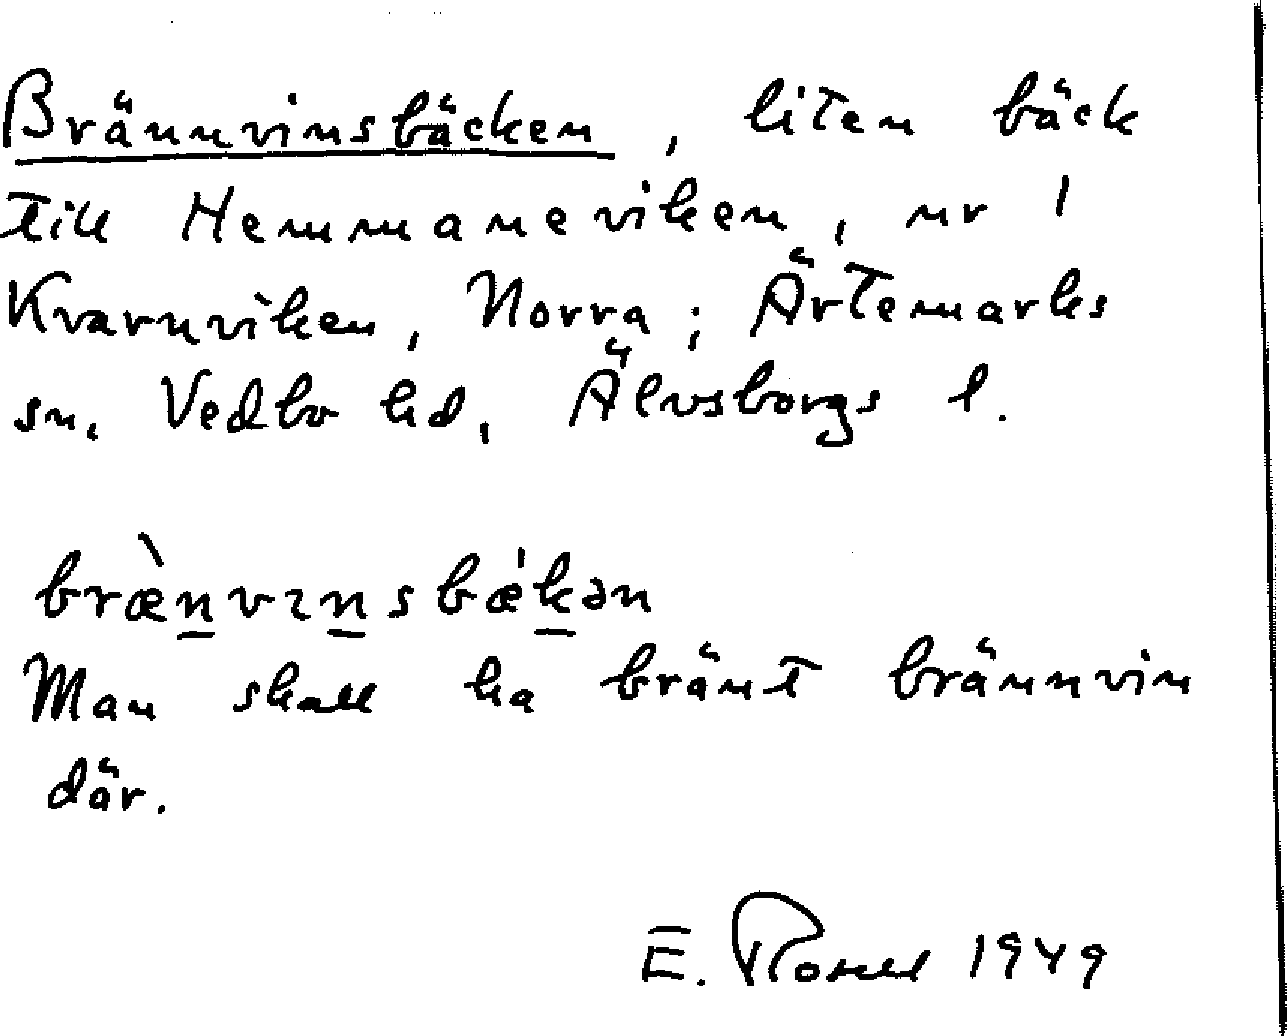 Brännvinsbäcken, liten bäck
till Hemmaneviken, nr 1
Kvarnviken, Norra; Ärtemarks
sn, Vedbo hd, Älvsborgs l.
bræ̀n̲vɪn̲sbæ̍k̲ən
Man skall ha bränt brännvin
där.
E. Rosell 1949